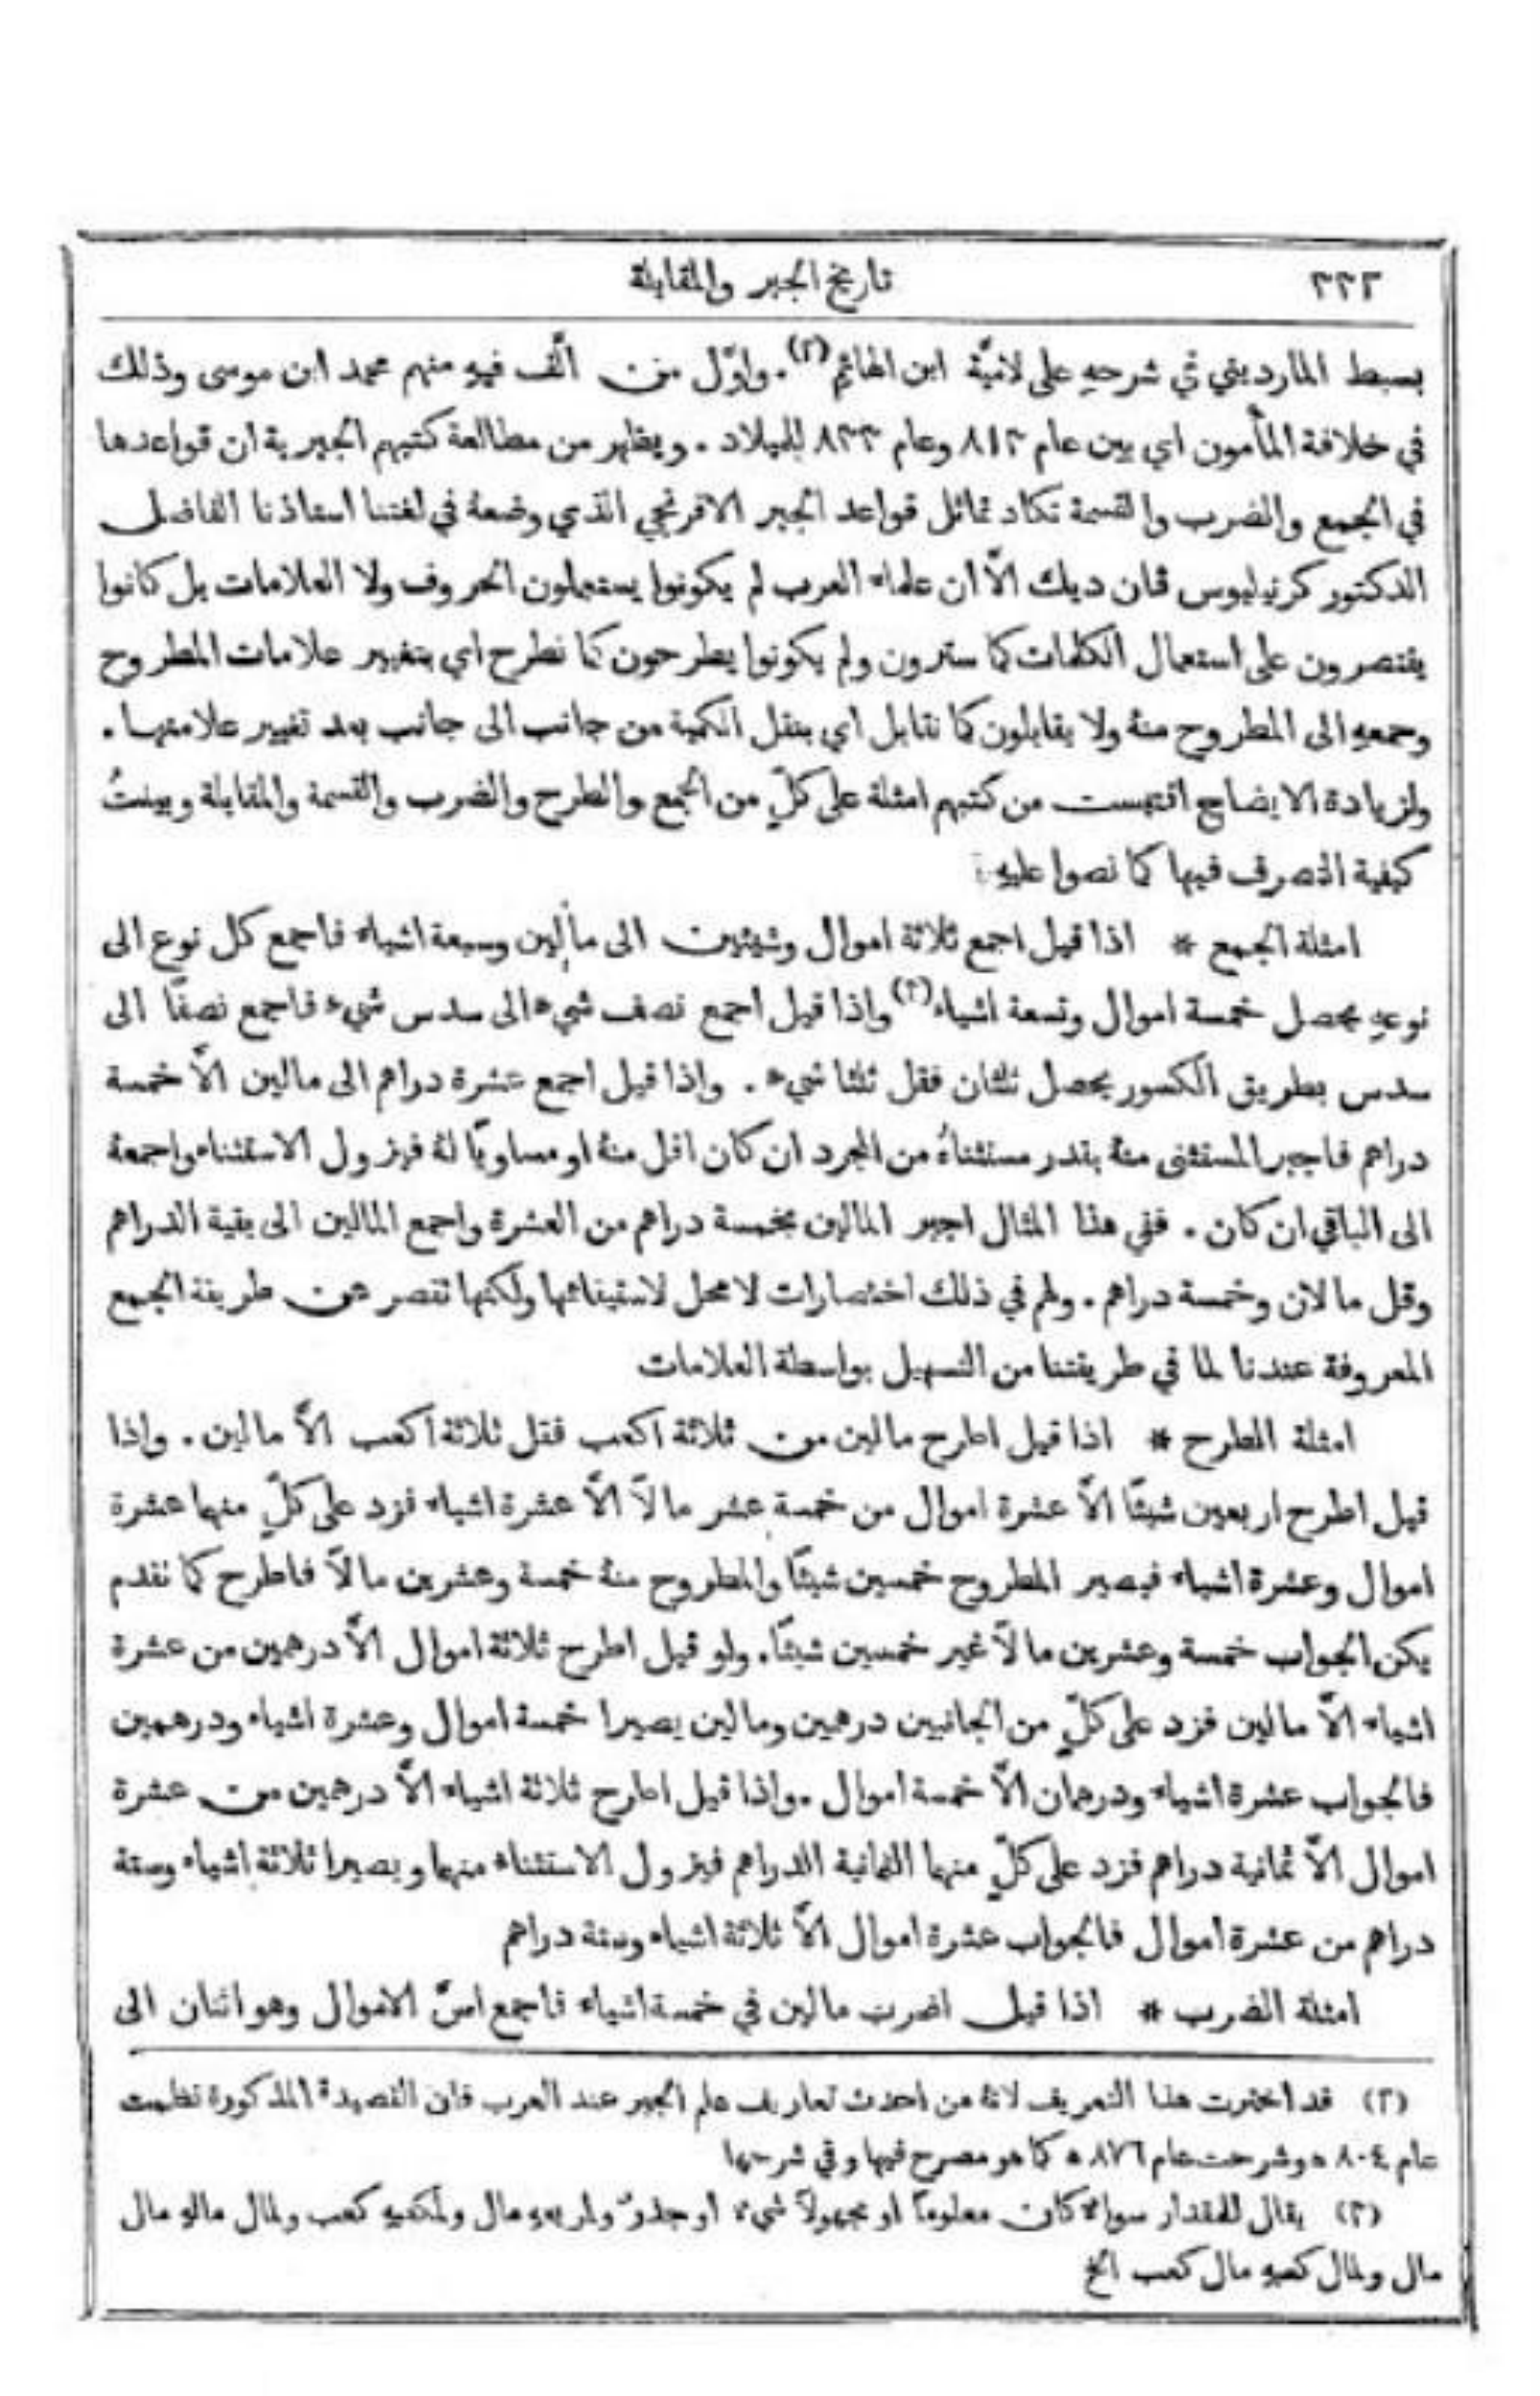 ٢٢٢ تاريخ الجبر والمقابلة
بسبط المارديني في شرحهِ على لاميَّة ابن الهائم(٢). واوَّل من الَّف فيهِ منهم محمد ابن موسى وذلك
في خلافة المأمون اي بين عام ٨١٣ وعام ٨٣٣ للميلاد . ويظهر من مطالعة كتبهم الجبرية ان قواعدها
في الجمع والضرب والقسمة تكاد تماثل قواعد الجبر الافرنجي الذي وضعهُ في لغتنا استاذنا الفاضل
الدكتور كرنيليوس ڤان ديك الَّا ان علماء العرب لم يكونوا يستعملون الحروف ولا العلامات بل كانوا
يقتصرون على استعمال الكلمات كما سترون ولم يكونوا يطرحون كما نطرح اي بتغيير علامات المطروح
وجمعهِ الى المطروح منهُ ولا يقابلون كما نقابل اي بنقل الكمية من جانب الى جانب بعد تغيير علامتها .
ولزيادة الايضاح اقتبست من كتبهم امثلة على كلٍّ من الجمع والطرح والضرب والقسمة والمقابلة وبينتُ
كيفية التصرف فيها كما نصوا عليهِ
امثلة الجمع * اذا قيل اجمع ثلاثة اموال وشيئين الى مالين وسبعة اشياء فاجمع كل نوع الى
نوعهِ يحصل خمسة اموال وتسعة اشياء(٣) واذا قيل اجمع نصف شيء الى سدس شيء فاجمع نصفًا الى
سدس بطريق الكسور يحصل ثلثان فقل ثلثا شيء . واذا قيل اجمع عشرة دراهم الى مالين الَّا خمسة
دراهم فاجبر المستثنى منهُ بقدر مستثناهُ من المجرد ان كان اقل منهُ او مساويًا لهُ فيزول الاستثناء واجمعهُ
الى الباقي ان كان . ففي هذا المثال اجبر المالين بخمسة دراهم من العشرة واجمع المالين الى بقية الدراهم
وقل مالان وخمسة دراهم . ولهم في ذلك اختصارات لا محل لاستيفائها ولكنها تقصر عن طريقة الجمع
المعروفة عندنا لما في طريقتنا من التسهيل بواسطة العلامات
امثلة الطرح * اذا قيل اطرح مالين من ثلاثة اكعب فقل ثلاثة اكعب الَّا مالين . واذا
قيل اطرح اربعين شيئًا الَّا عشرة اموال من خمسة عشر مالًا الَّا عشرة اشياء فزد على كلٍّ منهما عشرة
اموال وعشرة اشياء فيصير المطروح خمسين شيئًا والمطروح منهُ خمسة وعشرين مالًا فاطرح كما تقدم
يكن الجواب خمسة وعشرين مالًا غير خمسين شيئًا. ولو قيل اطرح ثلاثة اموال الَّا درهمين من عشرة
اشياء الَّا مالين فزد على كلٍّ من الجانبين درهمين ومالين يصيرا خمسة اموال وعشرة اشياء ودرهمين
فالجواب عشرة اشياء ودرهمان الَّا خمسة اموال .واذا قيل اطرح ثلاثة اشياء الَّا درهمين من عشرة
اموال الَّا ثمانية دراهم فزد على كلٍّ منهما الثمانية الدراهم فيزول الاستثناء منهما ويصيرا ثلاثة اشياء وستة
دراهم من عشرة اموال فالجواب عشرة اموال الَّا ثلاثة اشياء وستة دراهم
امثلة الضرب * اذا قيل اضرب مالين في خمسة اشياء فاجمع اسَّ الاموال وهو اثنان الى
(٢) قد اخترت هذا التعريف لانهُ من احدث تعاريف علم الجبر عند العرب فان القصيدة المذكورة نظمت
عام ٨٠٤ ه وشرحت عام ٨٧٦ ه كما هو مصرح فيها وفي شرحها
(٣) يقال للمقدار سواءٌ كان معلومًا او مجهولًا شيء او جذرٌ ولمربعهِ مال ولمكعبهِ كعب ولمال مالهِ مال
مال ولمال كعبهِ مال كعب الخ